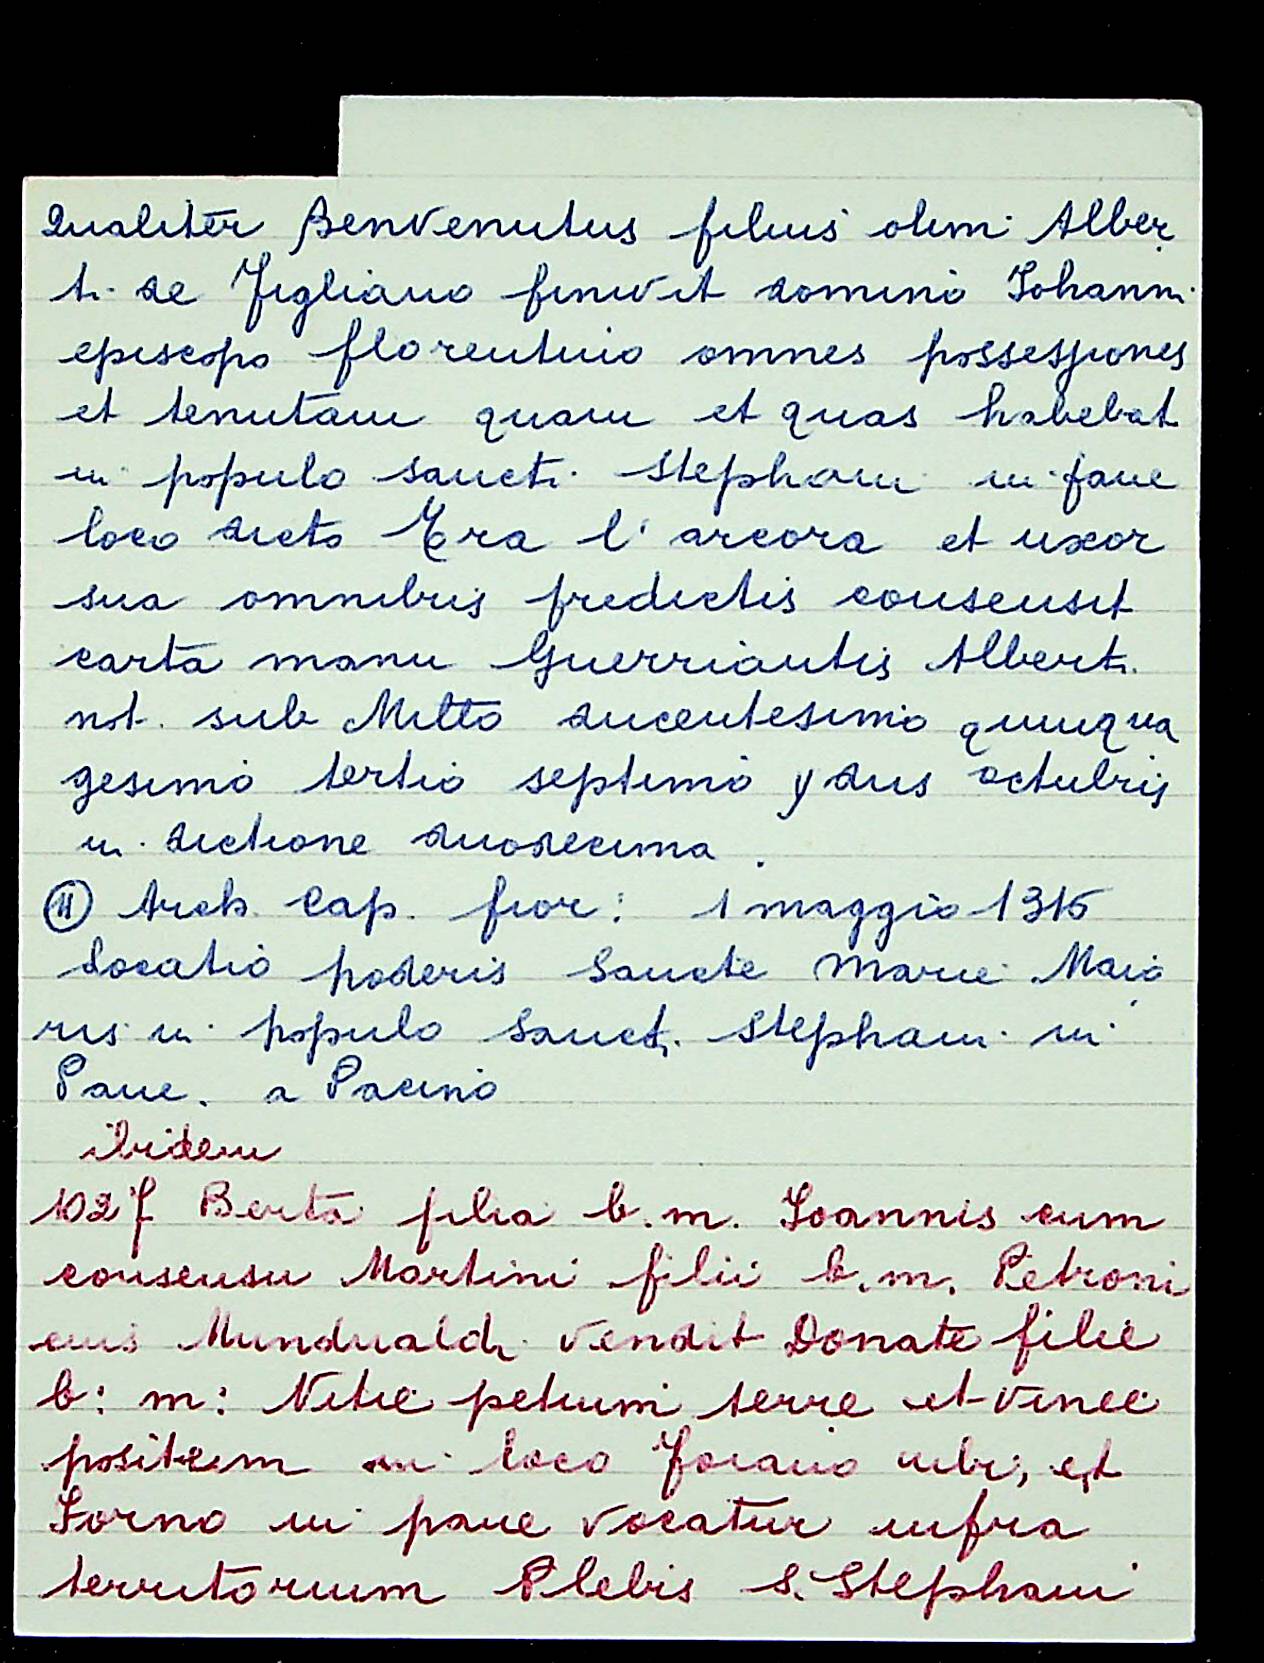 Qualiter Benvenutus filius olim Alber
ti de Figliano finivit domino Iohanni
episcopo florentino omnes possessiones
et tenutam quam et quas habebat
in populo sancti Stephani in pane
loco dicto Era l'arcora et uxor
sua omnibus predictis consensit
carta manu Guerriantis Alberti
not. sub Mille ducentesimo quinqua
gesimo tertio septimo ydus octubris
in dictione duodecima.
11 Arch. Cap. fior: 1 maggio 1316
Locatio poderis Sancte Marie Maio
ris in populo Sancti Stephani in
Pane. a Pacino
ibidem
1027 Berta filia b.m. Ioannis cum
consensu Martini filii b.m. Petroni
eius Mundualdi vendit Donate filie
b: m: Vitie petium terre et vinee
positum in loco Foiano ubi, et
Forno in pane vocatur infra
territorium Plebis S. Stephani